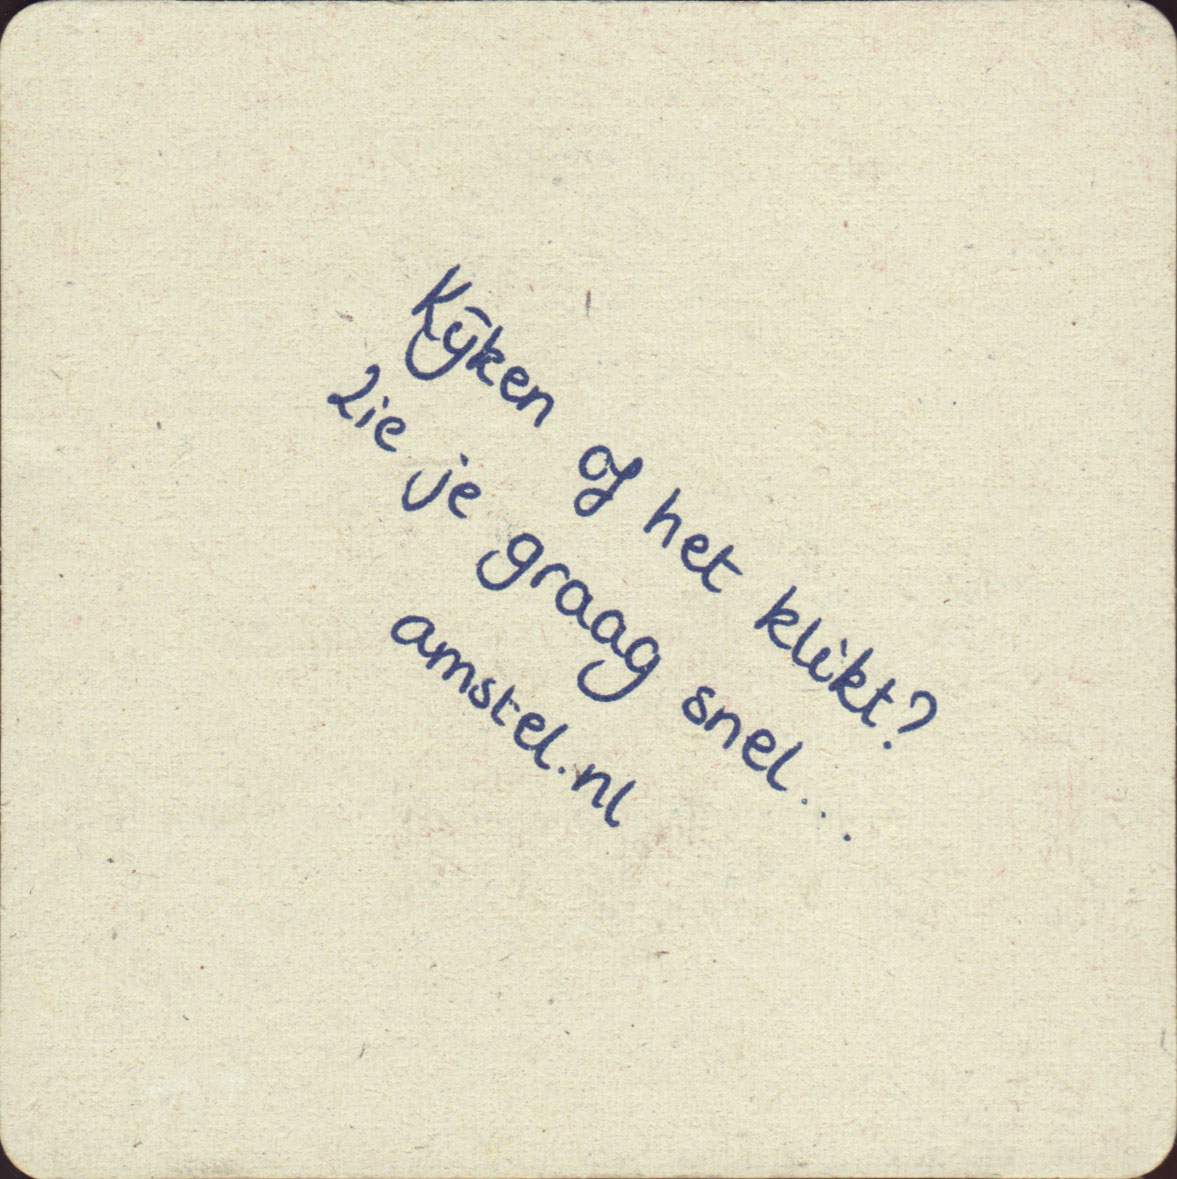 Kijken of het klikt?
Zie je graag snel...
amstel.nl